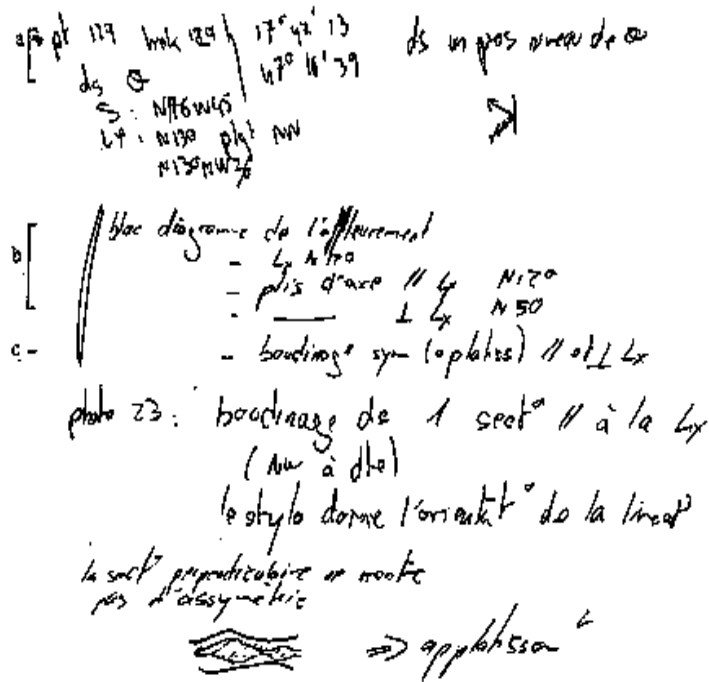 a pt 129 17° 42' 13 ds un pos niveau de
47° 16' 39
ds
S : N76W45
Lx : N130 plgt NW
N130NW26
b bloc diagramme de l'affleurement
- Lx N120
- plis d'axe // Lx N120
- ——— ⊥ Lx N50
c - - boudinage sym (aplatiss) // et ⊥ Lx
photo 23 : boudinage ds 1 sect° // à la Lx
(NW à dte)
le stylo donne l'orientat° de la lineat°
la sect° perpendiculaire ne montre
pas d'assymétrie
=> applatissemt